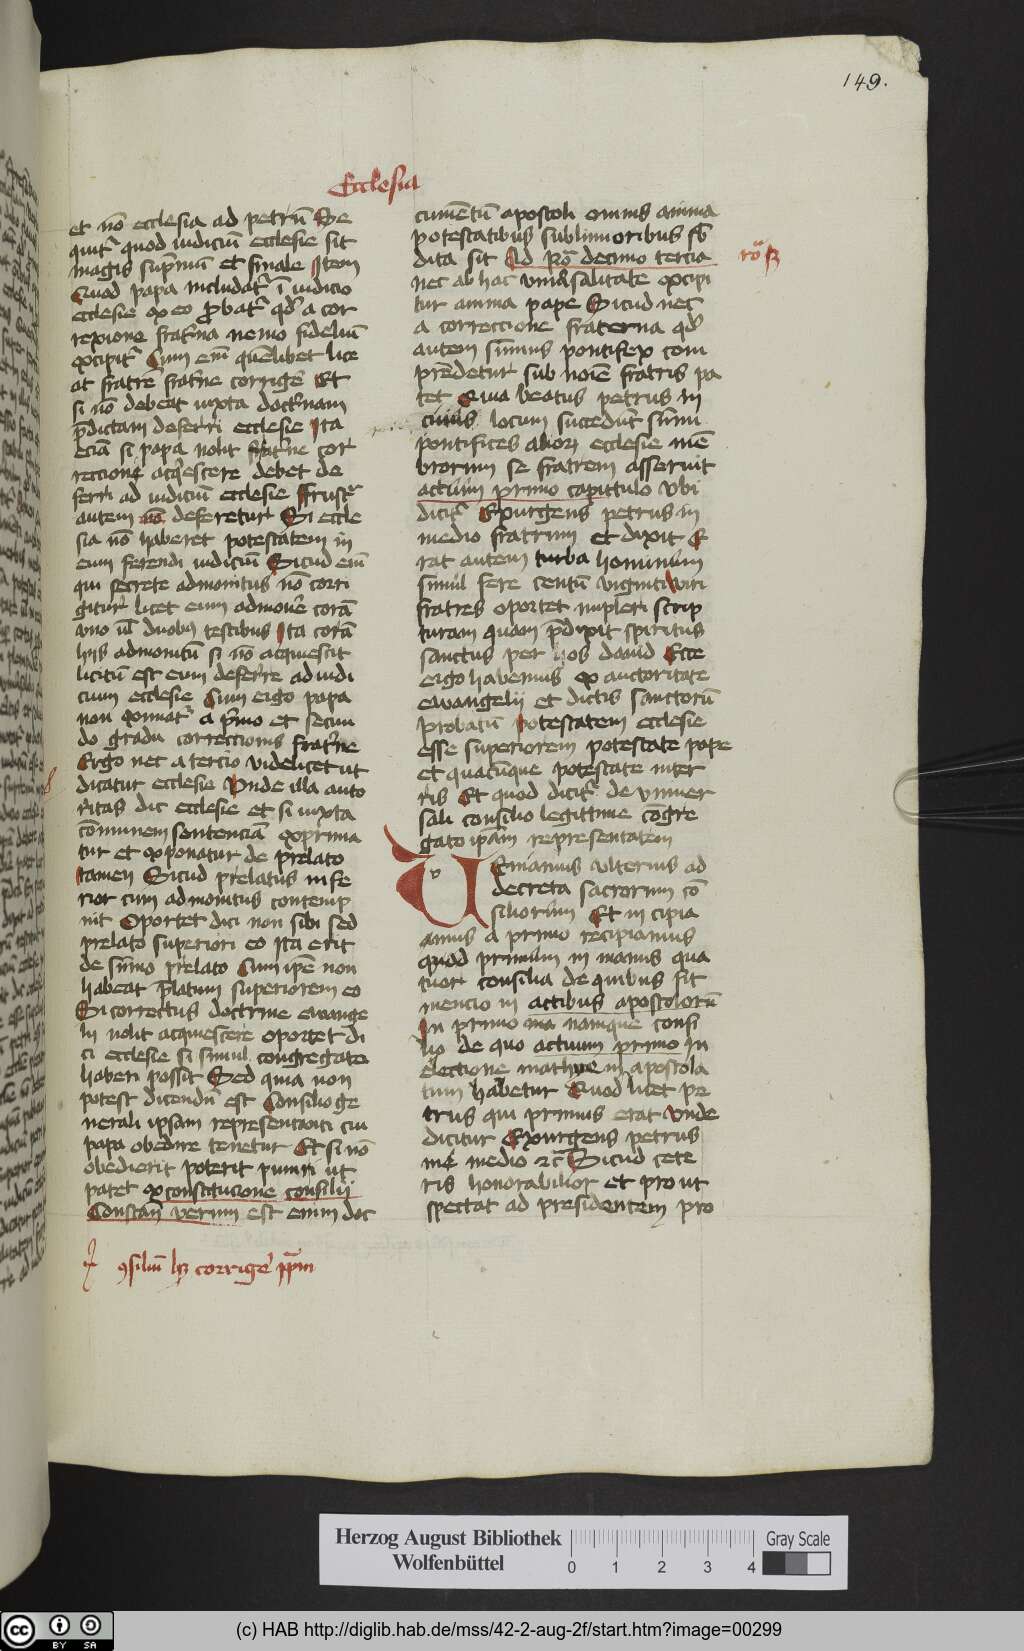 149.
Ecclesia
et nō ecclesia ad petrū Se
quitr̄ quod iudiciū ecclesie sit
magis sup̄mū et finale Item
Quod papa includatr̄ ī iudicio
ecclesie ex eo probatr̄ qd̓ a cor
rexione frat̓na nemo fideliū
excipitr̄ Cum em̄ quēlibet lice
at fratrē frat̓ne corrigē Et
si nō debeat iuxta doct̓nam
p̄dictam deferri ecclesie Ita
eciā si papa nolit frat̓ne cor
rectioni acq̓escere debet de
ferri ad iudiciū ecclesie Frustr̄
autem nō deferetur Si eccle
sia nō haberet potestatem in
eum ferendi iudiciū Sicud em̄
qui secrete admonitus nō corri
gitur licet eum admonē corā
vno ul̄ duobꝫ testibus Ita corā
hijs admonitū si nō acquiescit
licitū est eum deferre ad iudi
cium ecclesie Cum ergo papa
non eximatr̄ a p̓mo et secun
do gradu correctionis frat̓ne
Ergo nec a tercio videlicet ut
dicatur ecclesie Vnde illa auto
ritas dic ecclesie et si iuxta
cōmunem sentenciā exprima
tur et exponatur de prelato
tamen Sicud prelatus infe
rior cum admonitus contemp
nit Oportet dici non sibi sed
prelato superiori eo Ita erit
de sūmo prelato Cum ipē non
habeat p̄latum superiorem eo
Si correctus doctrine ewange
lii nolit acquiescere oportet di
ci ecclesie si simul congregata
haberi possit Sed quia non
potest dicendū est Consilio ge
nerali ipsam representanti cui
papa obedire tenetur Et si nō
obedierit poterit puniri ut
patet ex constitucione consilij
Constan̄ verum est enim doc
ꝯsiliū hꝫ corrigē pp̄am
cumētū apostoli omnis anima
potestatibus sublimioribus sb̄
dita sit Ad Ro̅ decimo tercia
ro̅ 13
nec ab hac vniūsalitate excipi
tur anima pape Sicud nec
a correccione fraterna qd̓
autem sūmus pontifex com
prēdetur sub noīe fratris pa
tet Quia beatus petrus in
cuius locum succedūt sūmi
pontifices alioꝝ ecclesie mē
brorum se fratrem asseruit
actuum primo capittulo vbi
dicitr̄ Exurgens petrus in
medio fratrum et dixit E
rat autem turba hominum
simul fere centū viginti Viri
fratres oportet impleri scrip
turam quam p̄dixit spiritus
sanctus per hos dauid Ecce
ergo habemus ex auctoritate
ewangelij et dictis sanctorū
probatū potestatem ecclesie
esse superiorem potestate pape
et quacūque potestate inter
ris Et quod dicitr̄ de vniuer
sali consilio legittime cōgre
gato ipsā̄m representatem
Veniamus vlterius ad
decreta sacrorum cō
siliorum Et in cipia
amus a primo recipiamus
quod primum in manus qua
tuor consilia de quibus fit
mencio in actibus apostolorū
In primo ma namque consi
lio de quo actuum primo In
electione mathye in apostola
tum habetur Quod licet pe
trus qui primus erat Vnde
dicitur Exurgens petrus
in medio ⁊c̄ Sicud cete
ris honorabilior et pro ut
spectat ad presidentem pro
Herzog August Bibliothek
Wolfenbüttel
0 1 2 3 4
Gray Scale
cc BY SA
(c) HAB http://diglib.hab.de/mss/42-2-aug-2f/start.htm?image=00299